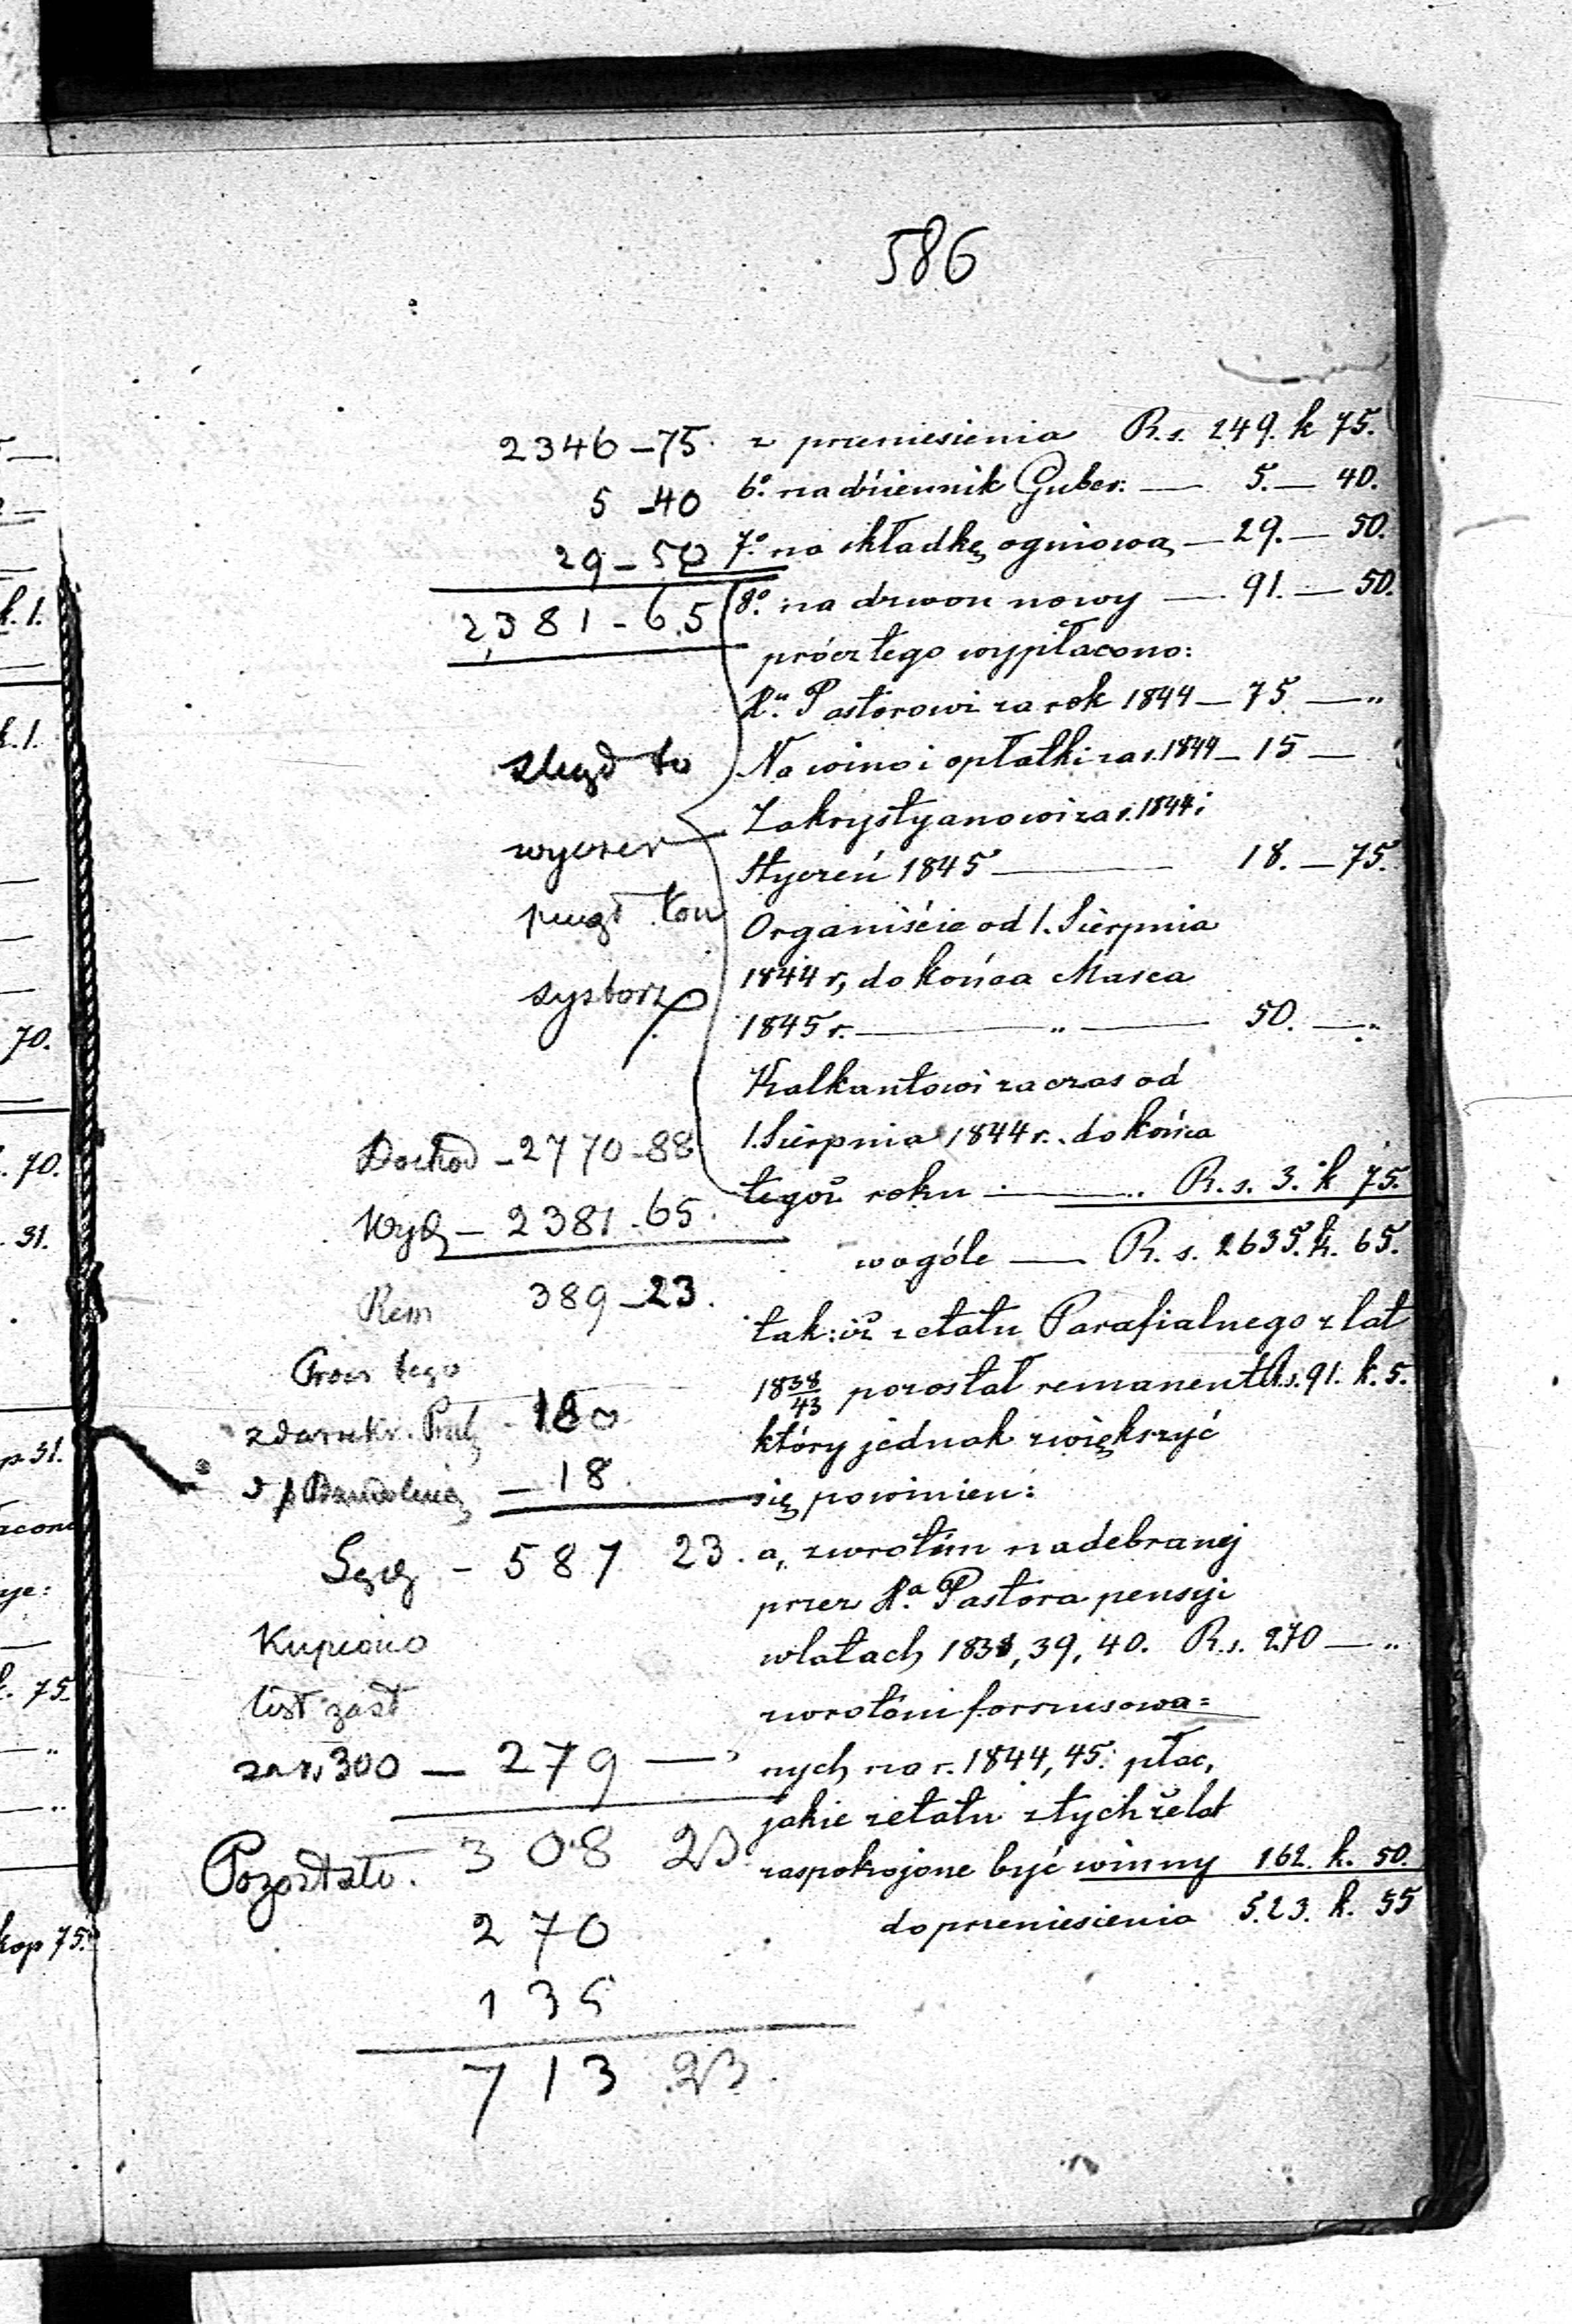 586
z przeniesienia R.s. 249. k 75.
6º. na dziennik Guber: — 5. — 40.
7º. na składkę ogniową — 29. — 50.
8º. na dzwon nowy — 91. — 50.
prócz tego wypłacono:
Pastorowi za rok 1844 — 75 — „
Na wino i opłatki za r. 1844 — 15 —
Zakrystyanowi za r. 1844 i
Styczeń 1845 — 18. — 75.
Organiście od 1. Sierpnia
1844 r, do końca Marca
1845 r. — „ — 50. — „
Kalkantowi za czas od
1. Sierpnia 1844 r. do końca
tegoż roku — „ R.s. 3. k 75.
wogóle — R.s. 2635. k. 65.
tak: iż z etatu Parafialnego z lat
1838/43 pozostał remanent R.s. 91. k. 5.
który jednak zwiększyć
się powinien:
a, zwrotem nadebranej
przez Xa. Pastora pensyi
w latach 1838, 39, 40. R.s. 270 — „
zwrotem forszusowa=
nych na r. 1844, 45: płac,
jakie z etatu z tychże lat
zaspokojone być winny 162. k. 50.
do przeniesienia 523. k. 55
2346 — 75.
5 — 40
29 — 50
2,381 - 65
Dochod — 2770 - 88
Wyd — 2381 - 65.
Rem 389 — 23.
Procz tego
180
— 18.
— 587 23.
Kupiono
list zast
za rs 300 — 279 —
Pozostało. 308 23
270
135
713 23.